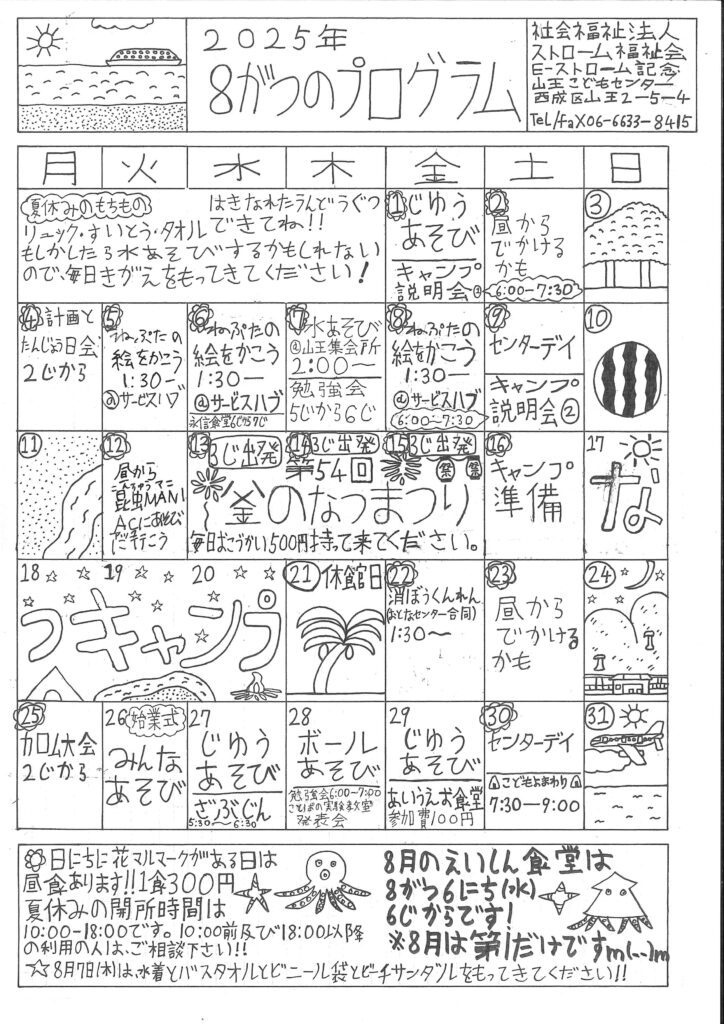 2025年
8がつのプログラム
社会福祉法人
ストローム福祉会
E-ストローム記念
山王こどもセンター
西成区山王2-5-4
Tel/fax06-6633-8415
月 火 水 木 金 土 日
夏休みのもちもの はきなれたうんどうぐつ
リュック・すいとう・タオル できてね!!
もしかしたら水あそびするかもしれない
ので、毎日きがえをもってきてください!
1 じゆう
あそび
キャンプ
説明会③
6:00-7:30
2
昼から
でかける
かも
3
4 計画と
たんじょう日会
2じから
5
ねぷたの
絵をかこう
1:30-
@サービスハブ
6 ねぷたの
絵をかこう
1:30-
@サービスハブ
永信食堂6じから7じ
7 水あそび
@山王集会所
2:00〜
勉強会
5じから6じ
8 ねぷたの
絵をかこう
1:30-
@サービスハブ
6:00-7:30
9
センターデイ
キャンプ
説明会②
10
11
12
昼から
昆虫MANI
ACにあそび
に行こう
13 3じ出発
14 3じ出発
15 3じ出発
第54回
釜のなつまつり
毎日おこづかい500円持って来てください。
16
キャンプ
準備
17
な
18 19 20
つキャンプ
21 休館日
22
消ぼうくんれん
(おとなセンター合同)
1:30〜
23
昼から
でかける
かも
24
25
カロム大会
2じから
26 始業式
みんな
あそび
27
じゆう
あそび
ざぶじん
5:30-6:30
28
ボール
あそび
勉強会6:00-7:00
ことばの実験教室
発表会
29
じゆう
あそび
あいうえお食堂
参加費100円
30
センターデイ
こどもよまわり
7:30-9:00
31
日にちに花マルマークがある日は
昼食あります!!1食300円
夏休みの開所時間は
10:00-18:00です。10:00前及び18:00以降
の利用の人は、ご相談下さい!!
☆8月7日(木)は、水着とバスタオルとビニール袋とビーチサンダルをもってきてください!!
8月のえいしん食堂は
8がつ6にち(水)
6じからです!
※8月は第1だけですm(--)m